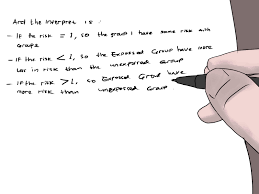 And the interpret is :
- If the risk = 1, so the group 1 have same risk with
groups
- If the risk < 1, so the Exposed Group have more
low in risk than the unexposed group
- If the risk > 1, so Exposed Group have
more risk than unexposed Group